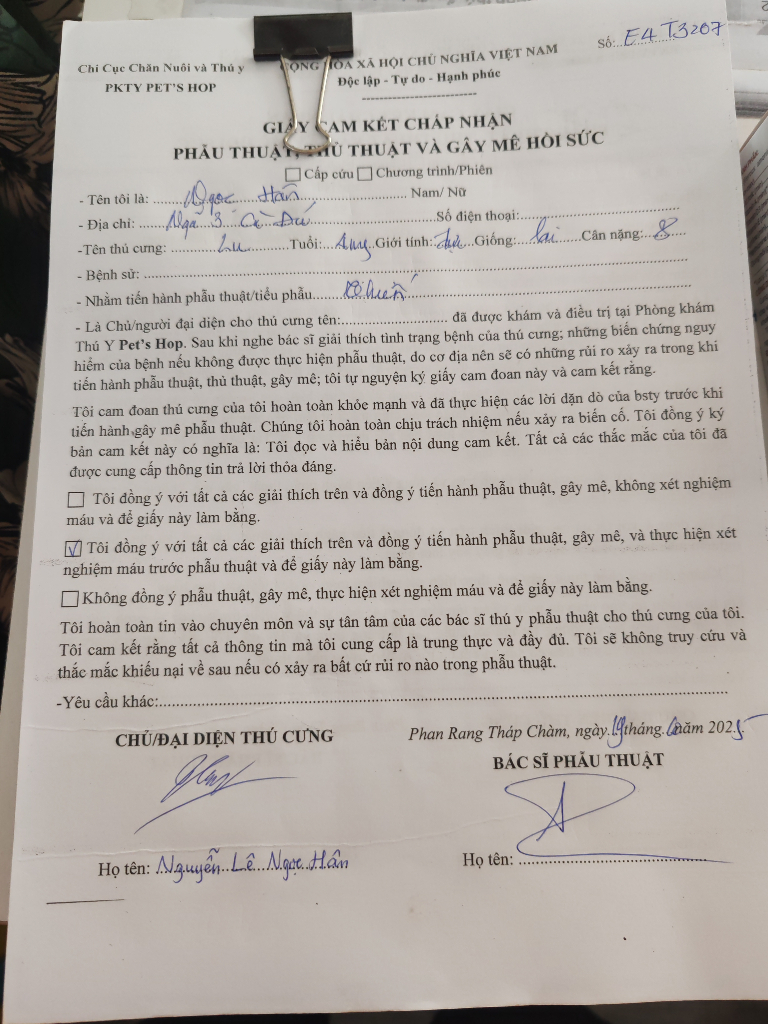 Số: E4T3207
Chi Cục Chăn Nuôi và Thú y
PKTY PET'S HOP
CỘNG HÒA XÃ HỘI CHỦ NGHĨA VIỆT NAM
Độc lập - Tự do - Hạnh phúc
GIẤY CAM KẾT CHẤP NHẬN
PHẪU THUẬT, THỦ THUẬT VÀ GÂY MÊ HỒI SỨC
☐ Cấp cứu ☐ Chương trình/Phiên
- Tên tôi là: Ngọc Hân Nam/ Nữ
- Địa chỉ: Ngã 3 Cà Đú Số điện thoại:
-Tên thú cưng: Lu Tuổi: Giới tính: đực Giống: lai Cân nặng: 8
- Bệnh sử:
- Nhằm tiến hành phẫu thuật/tiểu phẫu
- Là Chủ/người đại diện cho thú cưng tên: đã được khám và điều trị tại Phòng khám
Thú Y Pet's Hop. Sau khi nghe bác sĩ giải thích tình trạng bệnh của thú cưng; những biến chứng nguy
hiểm của bệnh nếu không được thực hiện phẫu thuật, do cơ địa nên sẽ có những rủi ro xảy ra trong khi
tiến hành phẫu thuật, thủ thuật, gây mê; tôi tự nguyện ký giấy cam đoan này và cam kết rằng.
Tôi cam đoan thú cưng của tôi hoàn toàn khỏe mạnh và đã thực hiện các lời dặn dò của bsty trước khi
tiến hành gây mê phẫu thuật. Chúng tôi hoàn toàn chịu trách nhiệm nếu xảy ra biến cố. Tôi đồng ý ký
bản cam kết này có nghĩa là: Tôi đọc và hiểu bản nội dung cam kết. Tất cả các thắc mắc của tôi đã
được cung cấp thông tin trả lời thỏa đáng.
☐ Tôi đồng ý với tất cả các giải thích trên và đồng ý tiến hành phẫu thuật, gây mê, không xét nghiệm
máu và để giấy này làm bằng.
☑ Tôi đồng ý với tất cả các giải thích trên và đồng ý tiến hành phẫu thuật, gây mê, và thực hiện xét
nghiệm máu trước phẫu thuật và để giấy này làm bằng.
☐ Không đồng ý phẫu thuật, gây mê, thực hiện xét nghiệm máu và để giấy này làm bằng.
Tôi hoàn toàn tin vào chuyên môn và sự tận tâm của các bác sĩ thú y phẫu thuật cho thú cưng của tôi.
Tôi cam kết rằng tất cả thông tin mà tôi cung cấp là trung thực và đầy đủ. Tôi sẽ không truy cứu và
thắc mắc khiếu nại về sau nếu có xảy ra bất cứ rủi ro nào trong phẫu thuật.
-Yêu cầu khác:
Phan Rang Tháp Chàm, ngày 19 tháng năm 2025
CHỦ/ĐẠI DIỆN THÚ CƯNG
BÁC SĨ PHẪU THUẬT
Họ tên: Nguyễn Lê Ngọc Hân
Họ tên: